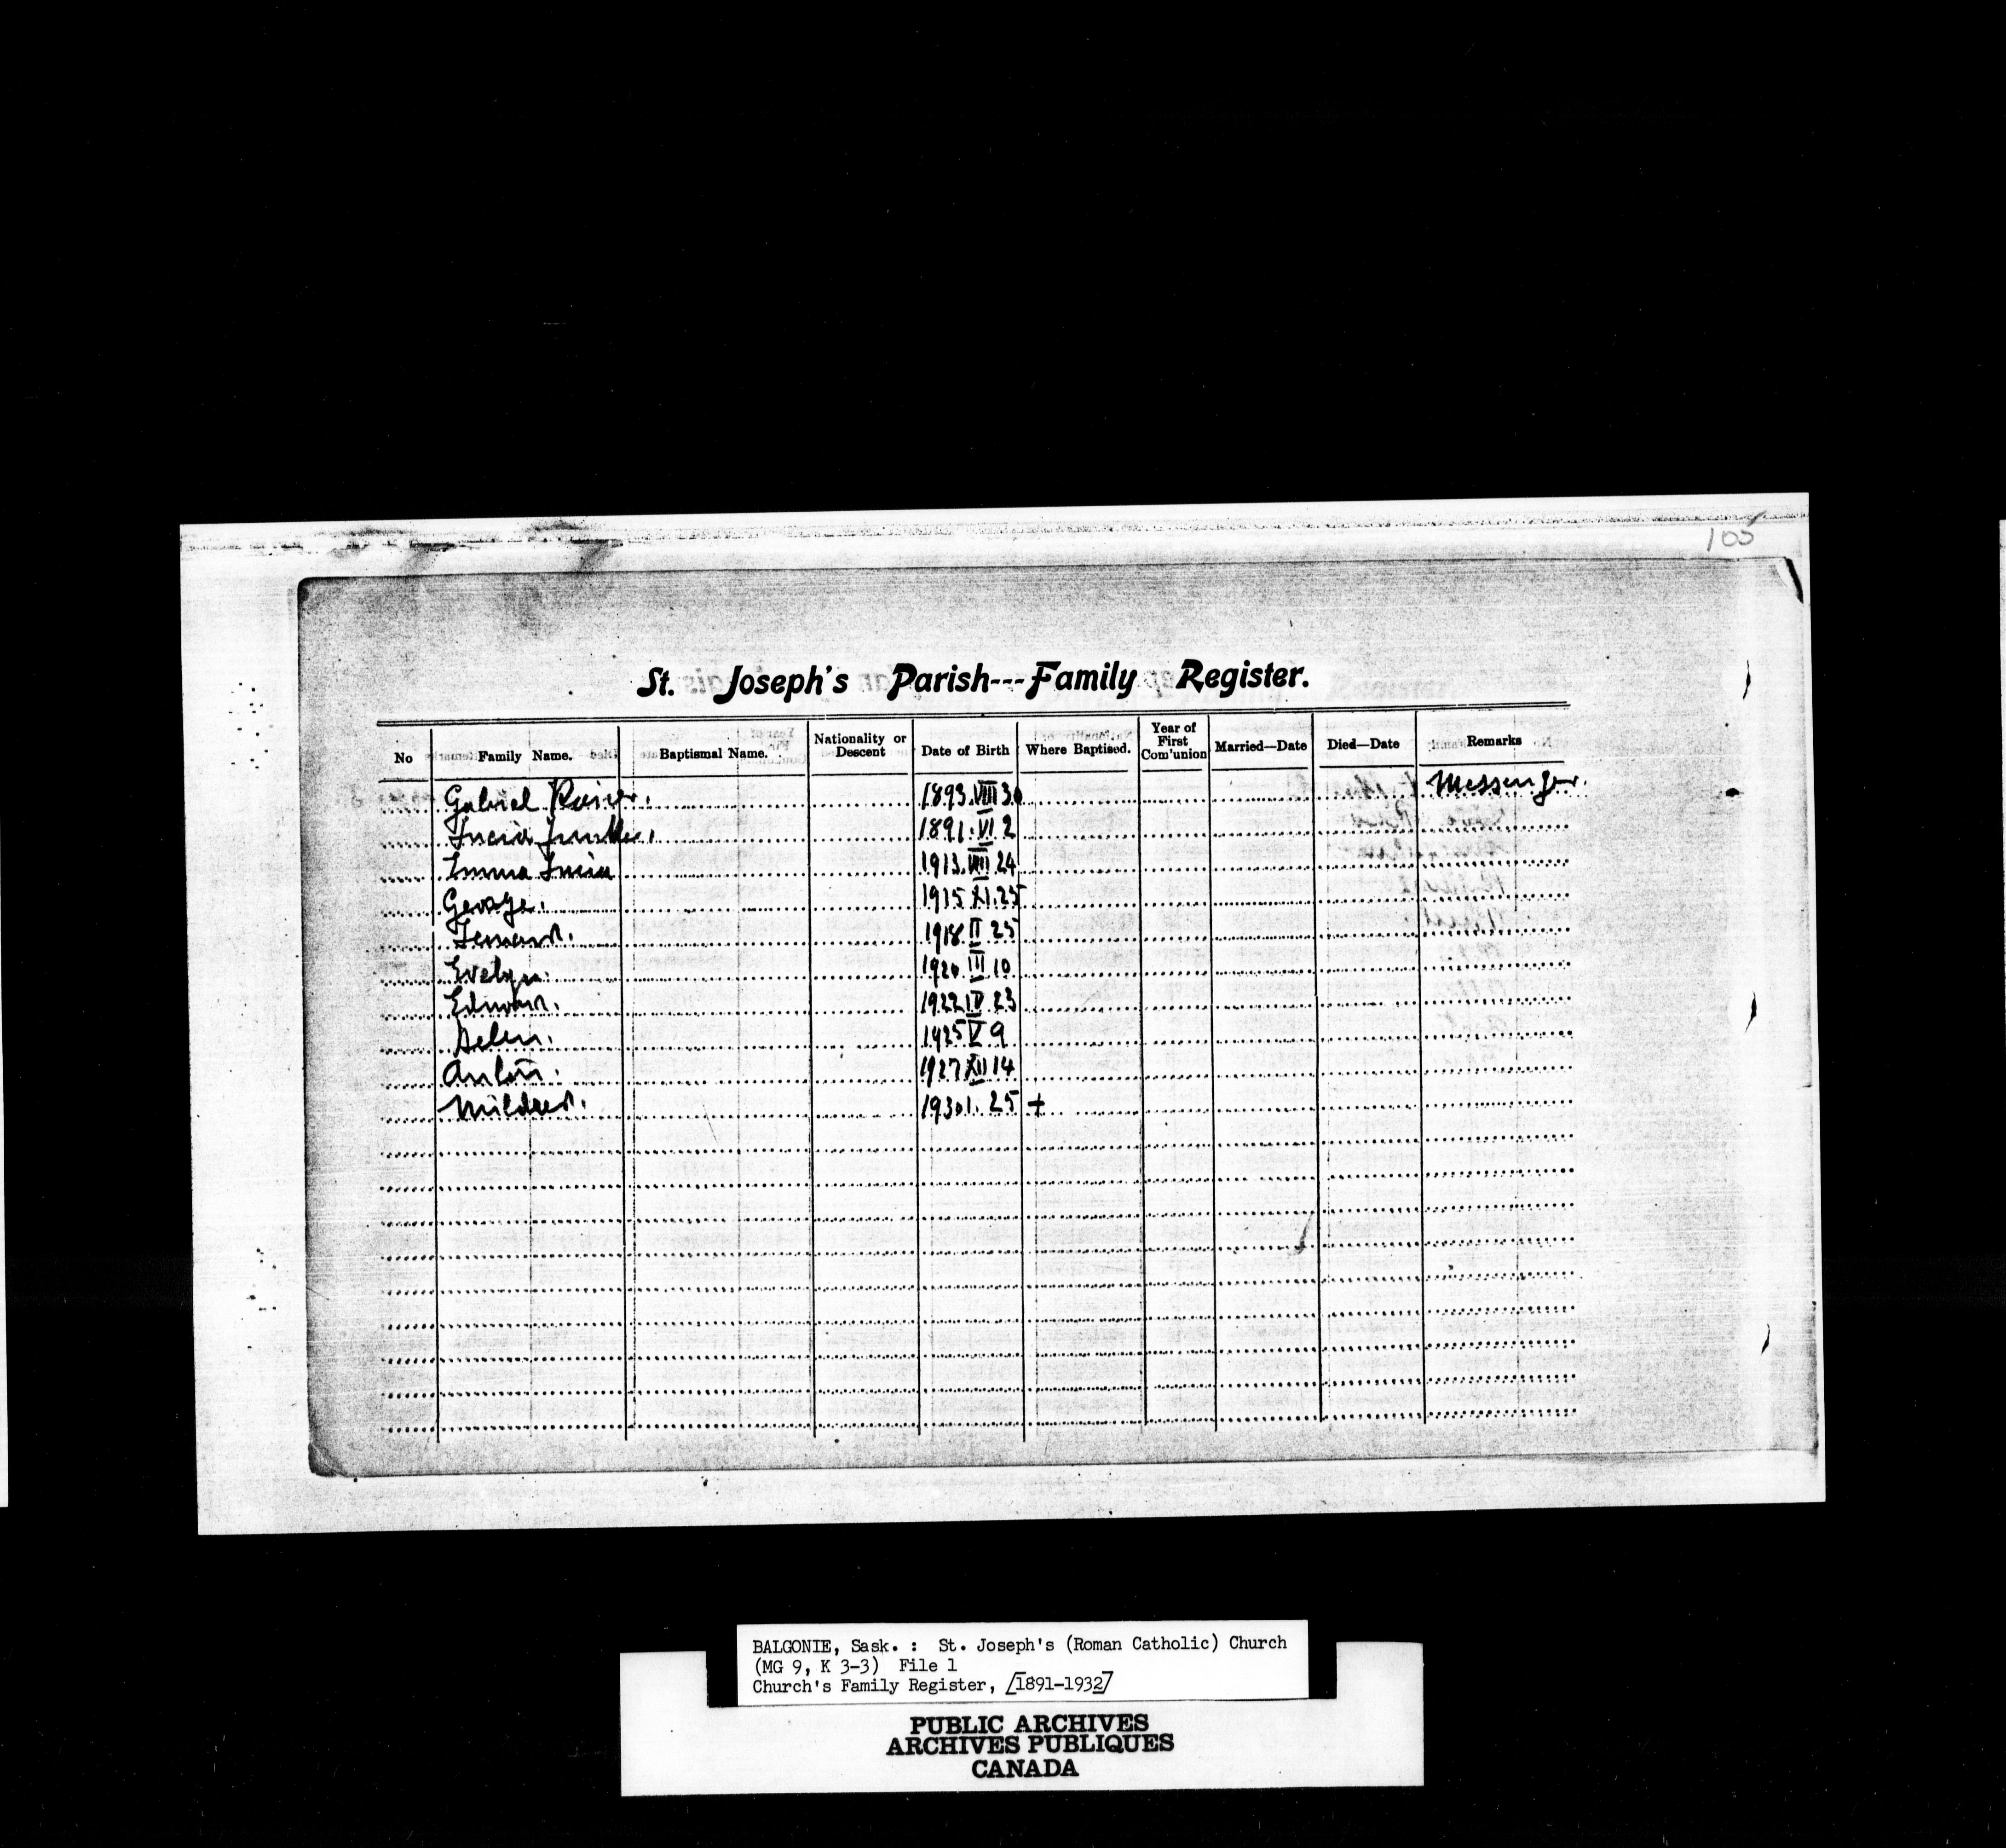 105
St. Joseph's Parish---Family Register.
No Family Name. Baptismal Name. Nationality or Descent Date of Birth Where Baptised. Year of First Com'union Married—Date Died—Date Remarks
Gabriel 1893.VIII 30 Messenger.
Lucia 1891.VI 2
Emma Lucia 1913.VIII 24
George. 1915 XI.25
1918 II 25
Evelyn. 1920 III 10
Edward. 1922 IV 23
Helen. 1925 V 9
Anton. 1927 XII 14
Mildred. 1930 1. 25 +
BALGONIE, Sask. : St. Joseph's (Roman Catholic) Church
(MG 9, K 3-3) File 1
Church's Family Register, [1891-1932]
PUBLIC ARCHIVES
ARCHIVES PUBLIQUES
CANADA